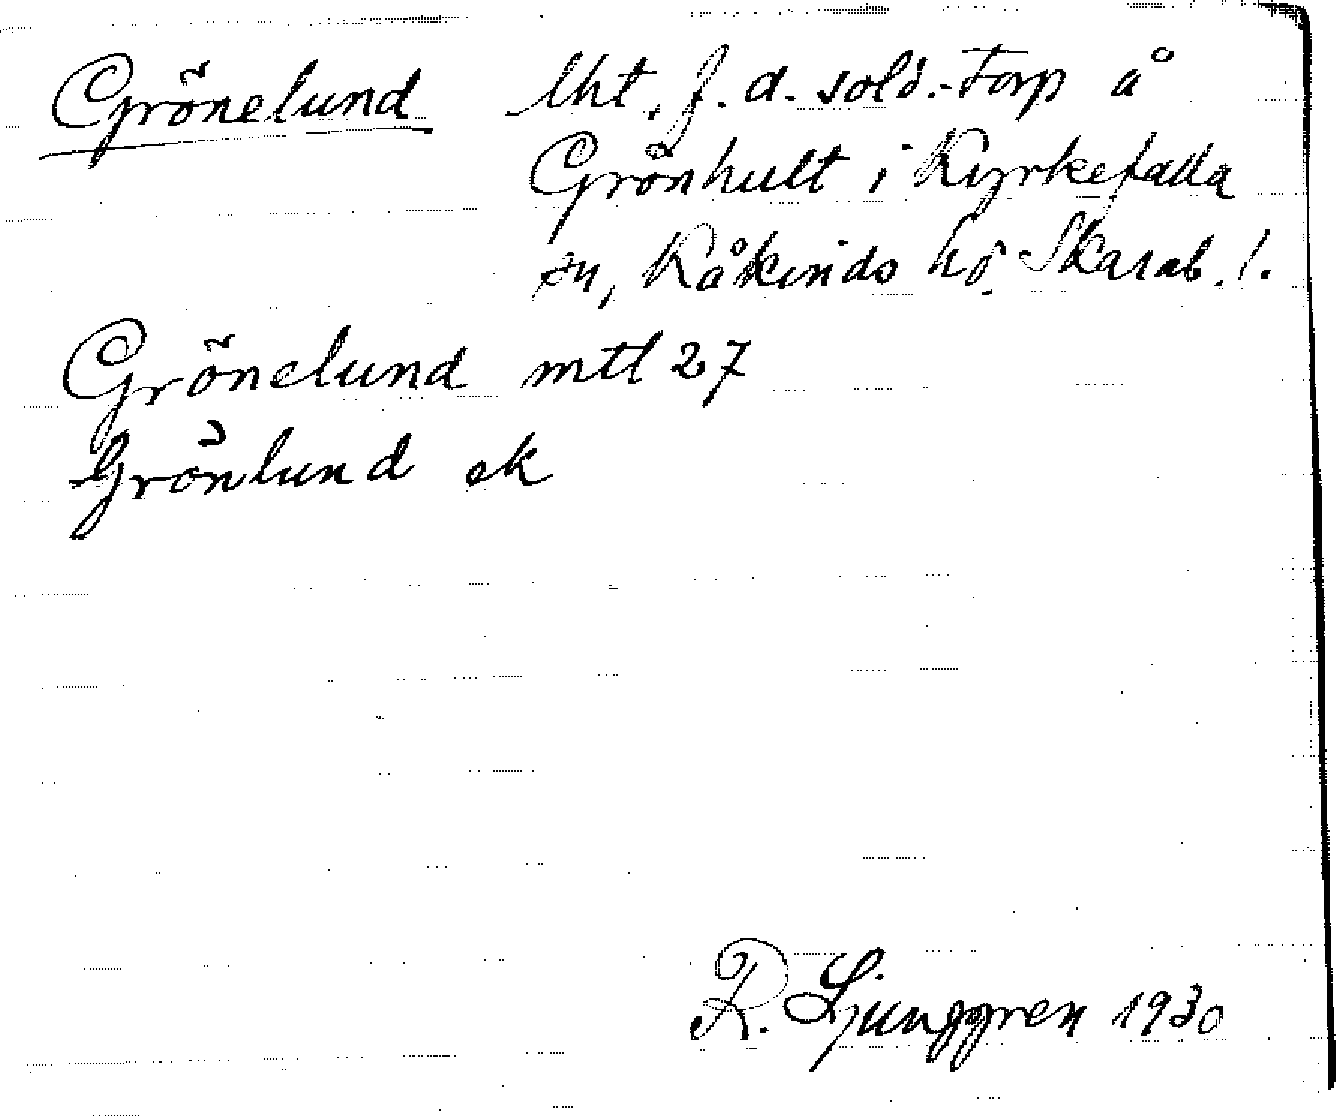 Grönelund lht. f. d. sold.-torp å
Grönhult i Kyrkefalla
sn, Kåkinds hd. Skarab. l.
Grönelund mtl 27
Grönlund ek
R. Ljunggren 1930